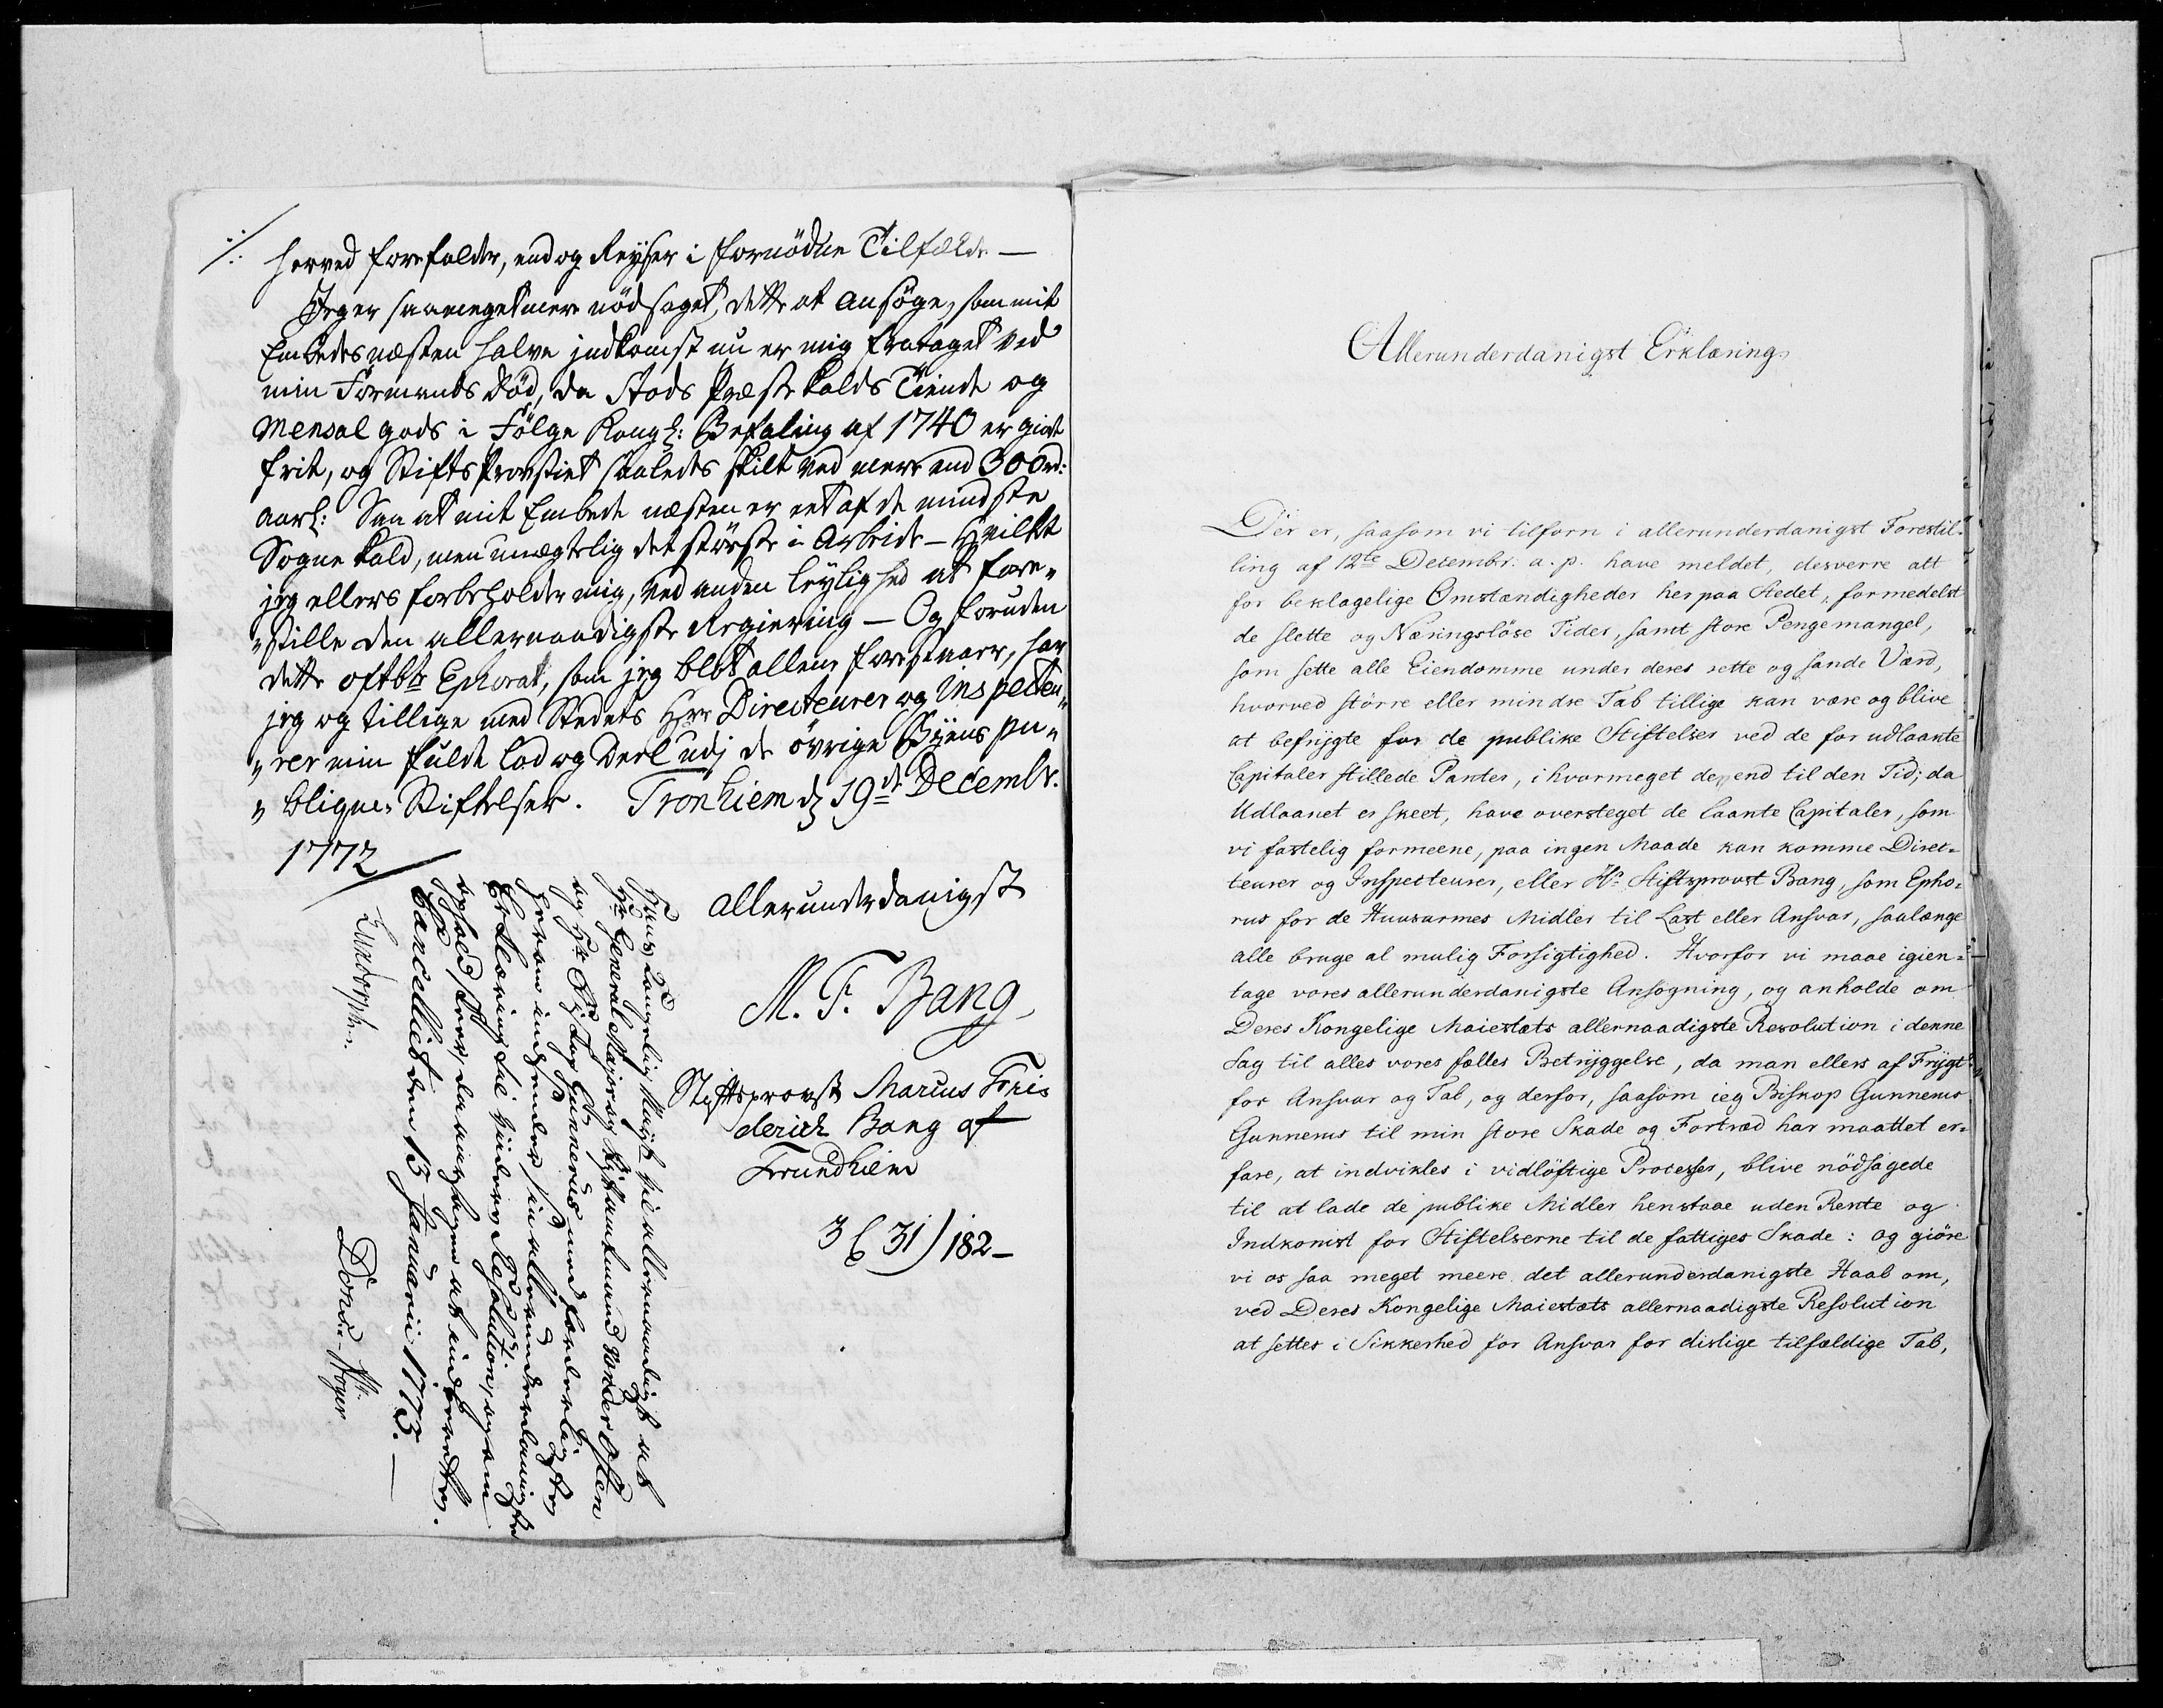 ./.
herved forefalder, endog Reyser i fornödne Tilfælde —
Jeg er saamegetmere nödsaget, dette at ansöge, som mit
Embedes næsten halve jndkomst nu er mig frataget ved
min Formands Död, da Stods Præste Kalds Tiende og
Mensal gods i Fölge Kongl: Befaling af 1740 er givet
frit, og StiftsProvstiet saaledes skilt ved mere end 300 rd:
aarl: Saa at mit Embede næsten er eet af de mindste
Sogne Kald, men unægtelig det störste i Arbeide — Hvilket
jeg ellers forbeholder mig, ved anden leylighed at fore„
„stille den allernaadigste Regiering — Og foruden
dette oftbte Ephorat, som jeg blot allene forestaaer, har
jeg og tillige med Stedets Hrr Directeurer og Inspecteu„
„rer min fulde lod og Deel udj de övrige Byens pu„
„bliqve Stiftelser. Tronhiem d 19de Decembr.
1772
allerunderdanigst
M. F. Bang
Stiftsprovst Marcus Frie
derich Bang af
Trundhiem
3 31) 182—
Hans Kongelig Mayt vil allernaadigst at
Hr General Major og Stiftamtmand von der Osten
og Hr Biskop Gunnerus med forderligste
herom indsender sin allerunderdanigste
Erklæring til videre Resolution, og en
Cancelliet den 13 Januarii 1773. —
Allerunderdanigst Erklæring
Der er, saasom vi tilforn i allerunderdanigst Forestil„
ling af 12te Decembr. a. p. have meldet, desverre alt
for beklagelige Omstændigheder her paa Stedet, formedelst
de slette og Næringslöse Tider, samt store Pengemangel,
som sette alle Eiendomme under deres rette og sande Værd,
hvorved större eller mindre Tab tillige kan være og blive
at befrygte for de publike Stiftelser ved de for udlaante
Capitaler stillede Panter, i hvormeget de end til den Tid, da
Udlaanet er skeet, have oversteget de laante Capitaler, som
vi fastelig formeene, paa ingen Maade kan komme Direc=
teurer og Inspecteurer, eller Hr Stiftsprovst Bang, som Epho=
rus for de Huusarmes Midler til Last eller Ansvar, saalænge
alle bruge al mulig Forsigtighed. Hvorfor vi maae igien=
tage vores allerunderdanigste Ansögning, og anholde om
Deres Kongelige Maiestæts allernaadigste Resolution i denne
Sag til alles vores fælles Betryggelse, da man ellers af Frygt
for Ansvar og Tab, og derfor, saasom ieg Biskop Gunnerus
Gunnerus til min store Skade og Fortræd har maattet er=
fare, at indvikles i vidlöftige Processer, blive nödsagede
til at lade de publike Midler henstaae uden Rente og
Indkomst for Stiftelserne til de fattiges Skade: og giöre
vi os saa meget meere det allerunderdanigste Haab om,
ved Deres Kongelige Maiestæts allernaadigste Resolution
at settes i Sikkerhed for Ansvar for dislige tilfældige Tab,